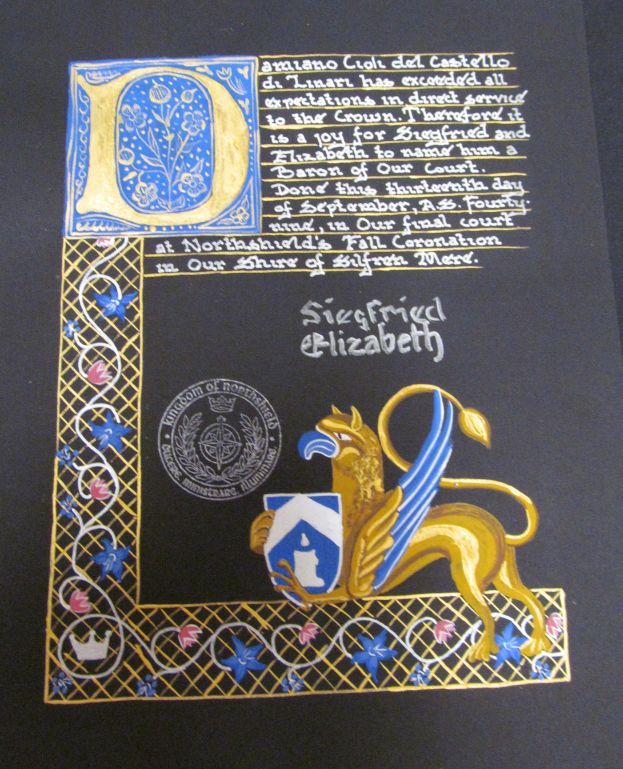 Damiano Cioli del Castello
di Linari has exceeded all
expectations in direct service
to the Crown. Therefore it
is a joy for Siegfried and
Elizabeth to name him a
Baron of Our Court.
Done this thirteenth day
of September, A.S. Fourty-
nine, in Our final court
at Northshield's Fall Coronation
in Our Shire of Silfren Mere.
Siegfried
Elizabeth
kingdom of northshield
ministrare, illuminare